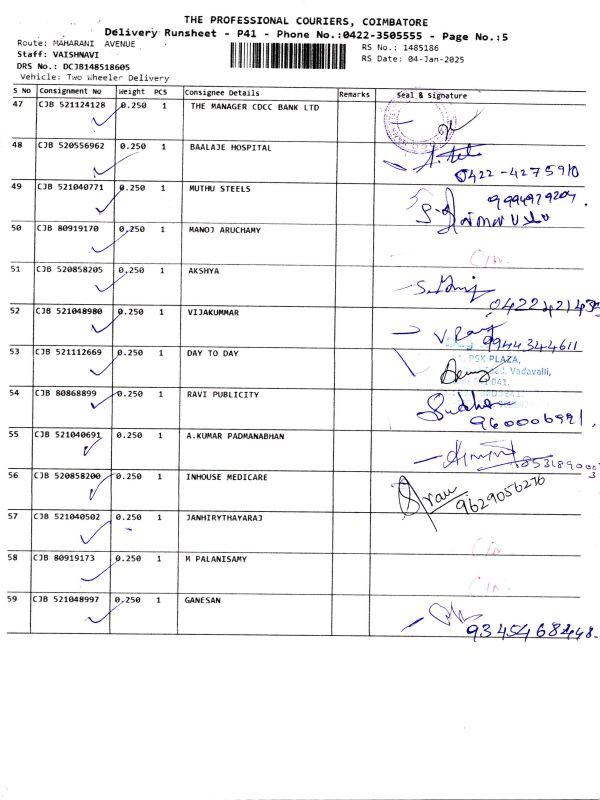 THE PROFESSIONAL COURIERS, COIMBATORE
Delivery Runsheet - P41 - Phone No.:0422-3505555 - Page No.:5
Route: MAHARANI AVENUE
RS No.: 1485186
Staff: VAISHNAVI
RS Date: 04-Jan-2025
DRS No.: DCJB148518605
Vehicle: Two Wheeler Delivery
S No Consignment No Weight PCS Consignee Details Remarks Seal & Signature
47 CJB 521124128 0.250 1 THE MANAGER CDCC BANK LTD
48 CJB 520556962 0.250 1 BAALAJE HOSPITAL
0422-4275910
49 CJB 521040771 0.250 1 MUTHU STEELS
50 CJB 80919170 0.250 1 MANOJ ARUCHAMY
51 CJB 520858205 0.250 1 AKSHYA
52 CJB 521048980 0.250 1 VIJAKUMMAR
9944344611
53 CJB 521112669 0.250 1 DAY TO DAY
PSK PLAZA,
Vadavalli,
54 CJB 80868899 0.250 1 RAVI PUBLICITY
9600006991
55 CJB 521040691 0.250 1 A.KUMAR PADMANABHAN
56 CJB 520858200 0.250 1 INHOUSE MEDICARE
9629056276
57 CJB 521040502 0.250 1 JANHIRYTHAYARAJ
58 CJB 80919173 0.250 1 M PALANISAMY
59 CJB 521048997 0.250 1 GANESAN